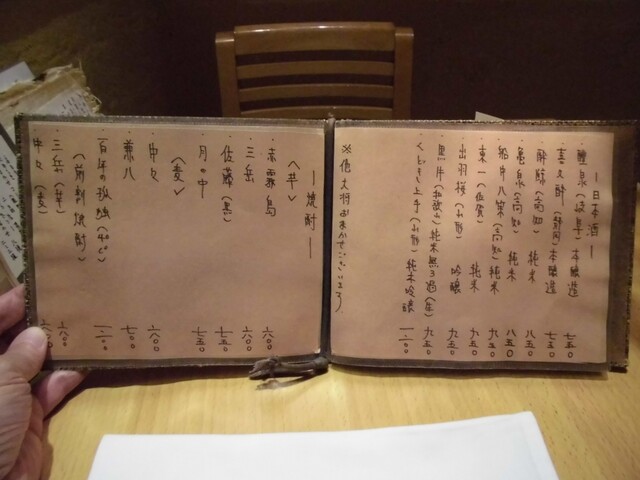 ―日本酒―
・醴泉(岐阜)本醸造 七五〇
・喜久酔(静岡)本醸造 七五〇
・酔鯨(高知)純米 八五〇
・亀泉(高知)純米 八五〇
・船中八策(高知)純米 九五〇
・東一(佐賀)純米 九五〇
・出羽桜(山形)吟醸 九五〇
・黒牛(和歌山)純米無ろ過(生) 九五〇
・くどき上手(山形)純米吟醸 一一〇〇
―焼酎―
<芋>
・赤霧島 六〇〇
・三岳 六〇〇
・佐藤(黒) 七五〇
・月の中 七五〇
<麦>
・中々 六〇〇
・兼八 七〇〇
・百年の孤独(40°)
(前割焼酎)
・三岳(芋) 六〇〇
・中々(麦)